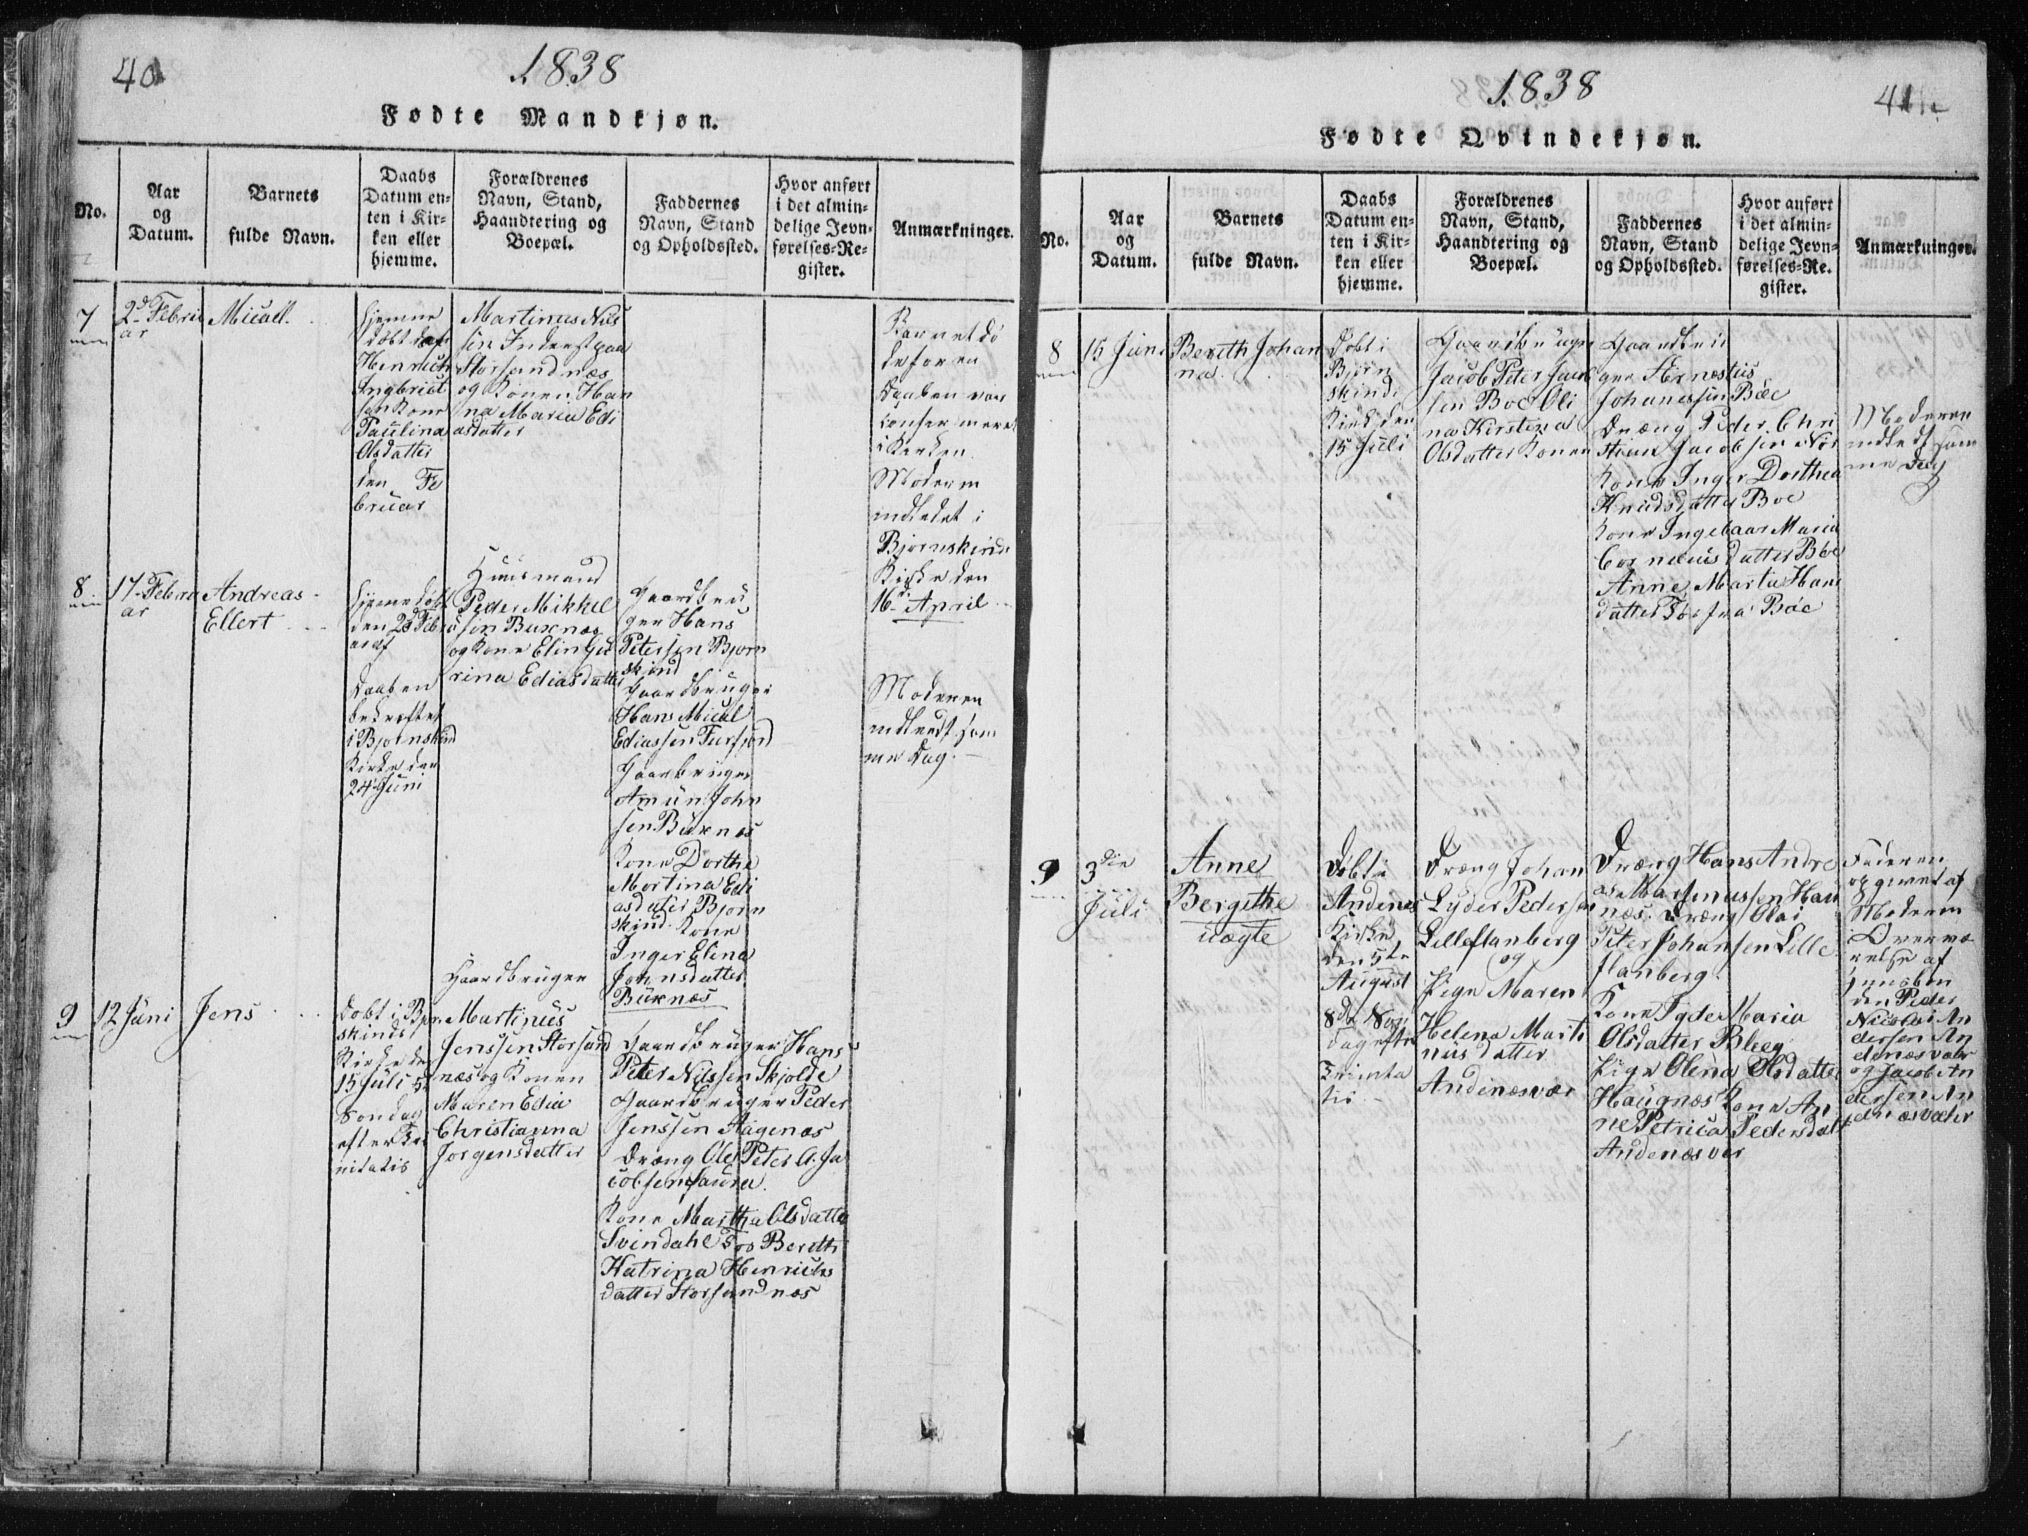 40
1838
Fødte Mandkjøn.
No.
Aar
og
Datum.
Barnets
fulde Navn.
Daabs
Datum en-
ten i Kir-
ken eller
hjemme.
Forældrenes
Navn, Stand,
Haandtering og
Boepæl.
Faddernes
Navn, Stand
og Opholdssted.
Hvor anført
i det almin-
delige Jevn-
førelses-Re-
gister.
Anmærkninger.
7
2d Febru
ar
Micall.
Hjemme
døbt af
Henrich
Ingbrict
sen Kone
Paulina
Olsdatter
den Fe
bruar
Martinus Nils
sen Inderst paa
Storsandnæs
og Konen Han
na Maria Edi
asdatter
Barnet dø
de foren
Daaben var
confermeret
i Kirken.
Moderen
indledet i
Bjørnskinds
Kirke den
16de April
8
17 Febru
ar
Andreas
Ellert
Hjemmedøbt
den 28 Febru
ar af
Daaben
bekræftet
i Bjornskind
Kirke den
24 Juni
Huusmand
Peder Mikkel
sen Buxnæs
og Kone Elen Gu
rina Ediasdatter
Gaardbru
ger Hans
Petersen Bjorn
skind
Gaardbruger
Hans Mical
Ediassen Furfjord
Gaardbruger
Amun John
sen Buxnæs
Kone Dorthe
Mortina Edi
asdatter Bjorn
skind. Kone
Inger Elena
Johnsdatter
Buxnæs
Moderen
indledt sam
me Dag.
9
12 Juni
Jens
Dobt i Bjørn
skinds
Kirke den
15 Juli 5te
Søndag
efter Tri
nitatis
Gaardbruger
Martinus
Jenssen Storsand
næs og Konen
Maren Edia
Christianna
Jorgensdatter
Gaardbruger Hans
Peter Nilssen Skjolde
Gaardbruger Peder
Jenssen Aagenæs
Dræng Ole Peter A. Ja
cobsen Saura.
Kone Martha Olsdatter
Svindahl Tøs Bereth
Katrina Henrichs
datter Storsandnæs
1838
41
Fødte Qvindekjøn.
No.
Aar
og
Datum.
Barnets
fulde Navn.
Daabs
Datum en-
ten i Kir-
ken eller
hjemme.
Forældrenes
Navn, Stand,
Haandtering og
Boepæl.
Faddernes
Navn, Stand
og Opholdssted.
Hvor anført
i det almin-
delige Jevn-
førelses-Re-
gister.
Anmærkninger.
8
15 Juni
Bereth Johan
na.
Døbt i
Bjørn
skinds
Kirke den
15 Juli
Gaardbruger
Jacob Peter Jacob
sen Boe Oli
na Kirstina
Olsdatter Konen
Gaardbru
ger Ernestus
Johanessen Böe
Dræng Peder Chri
stian Jacobsen Nor
Kone Inger Dorthea
Knudsdatter Boe
Kone Ingebaar Maria
Cornæliusdatter Böe
Anne Martia Hans
datter Tøs fra Böe
Moderen
indledt sam
me Dag
9
3die
Juli
Anne
Bergithe
uægte
Døbt i
Andenes
Kirke
den 5te
August
8de Søn
dag efter
Trinita
tis.
Dræng Johan
Lyder Pedersen
Lilleflanberg
og
Pige Maren
Helena Marti
nus datter
Andenæsvær
Dræng Hans Andre
as Rasmussen Hau
næs. Dræng Olai
Peter Johansen Lille
flanberg.
Kone Igde Maria
Olsdatter Bleeg
Pige Olena Olsdatter
Haugnæs Kone An
ne Petrica Pedersdatter
Andenæsvær
Faderen
opgivet af
Moderen
i Overvæ
relse af
Jensøben
den Peder
Nicolai An
dersen An
denæsvær
og Jacob An
dersen An
denæsvær